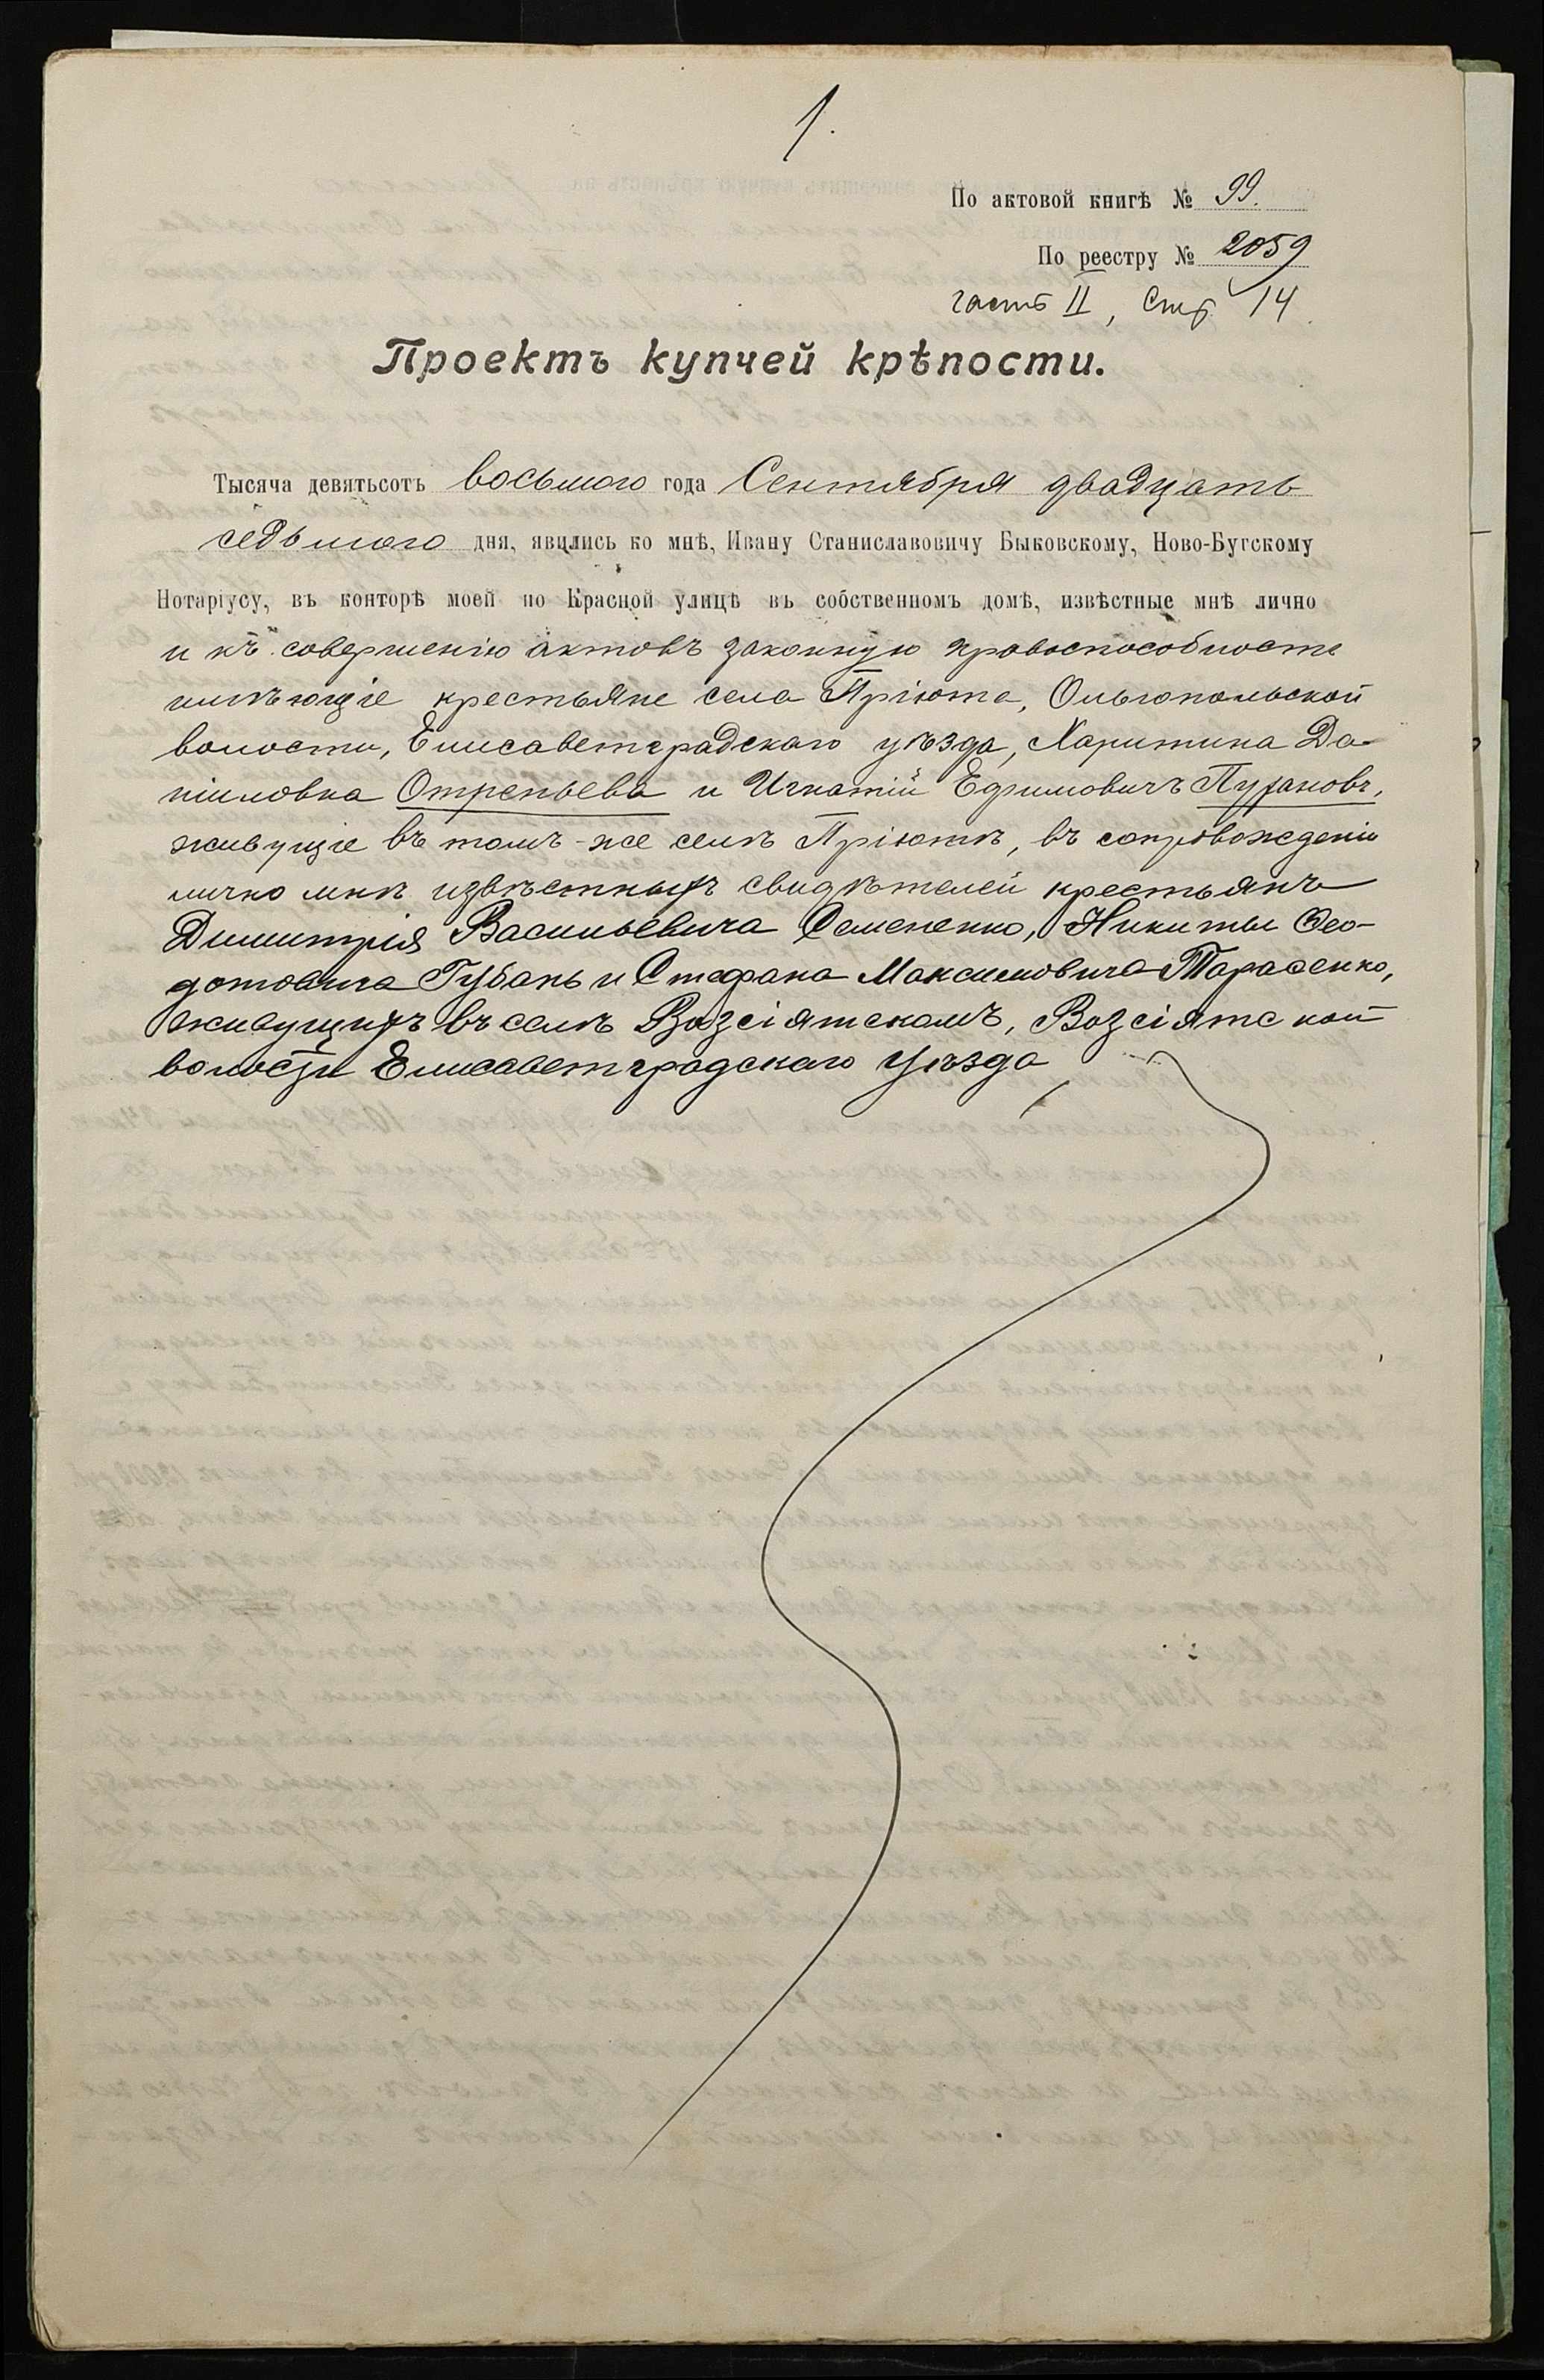 1.
По актовой книгѣ № 99.
По реестру № 2059
часть II, стр 14
Проектъ купчей крѣпости.
Тысяча девятьсотъ восьмого года Сентября двадцать
седьмого дня, явились ко мнѣ, Ивану Станиславовичу Быковскому, Ново-Бугскому
Нотаріусу, въ конторѣ моей по Красной улицѣ въ собственномъ домѣ, извѣстные мнѣ лично
и къ совершенію актовъ законную правоспособность
имѣющіе крестьяне села Пріюта, Ольгопольской
волости, Елисаветградскаго уѣзда, Харитина Да-
ніиловна Отрепьева и Игнатій Ефимовичъ Пузановъ,
живущіе въ томъ-же селѣ Пріютѣ, въ сопровожденіи
лично мнѣ извѣстныхъ свидѣтелей крестьянъ
Димитрія Васильевича Семененко, Никиты Ѳео-
дотовича Губань и Стефана Максимовича Тарасенко,
живущихъ въ селѣ Возсіятскомъ, Возсіятской
волости Елисаветградскаго уѣзда